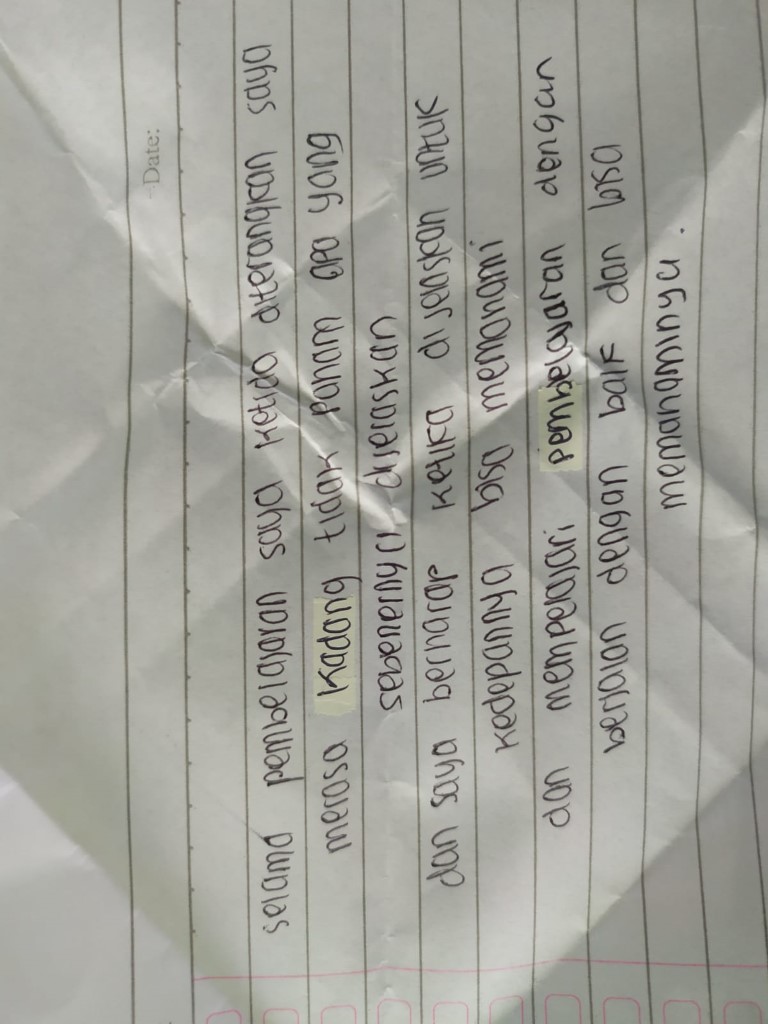 Date:
selama pembelajaran saya ketida diterangkan saya
merasa kadang tidak paham apa yang
sebenernya dijelaskan
dan saya berharap ketika dijelaskan untuk
kedepannya bisa memahami
dan mempelajari pembelajaran dengan
berjalan dengan baik dan bisa
memahaminya.